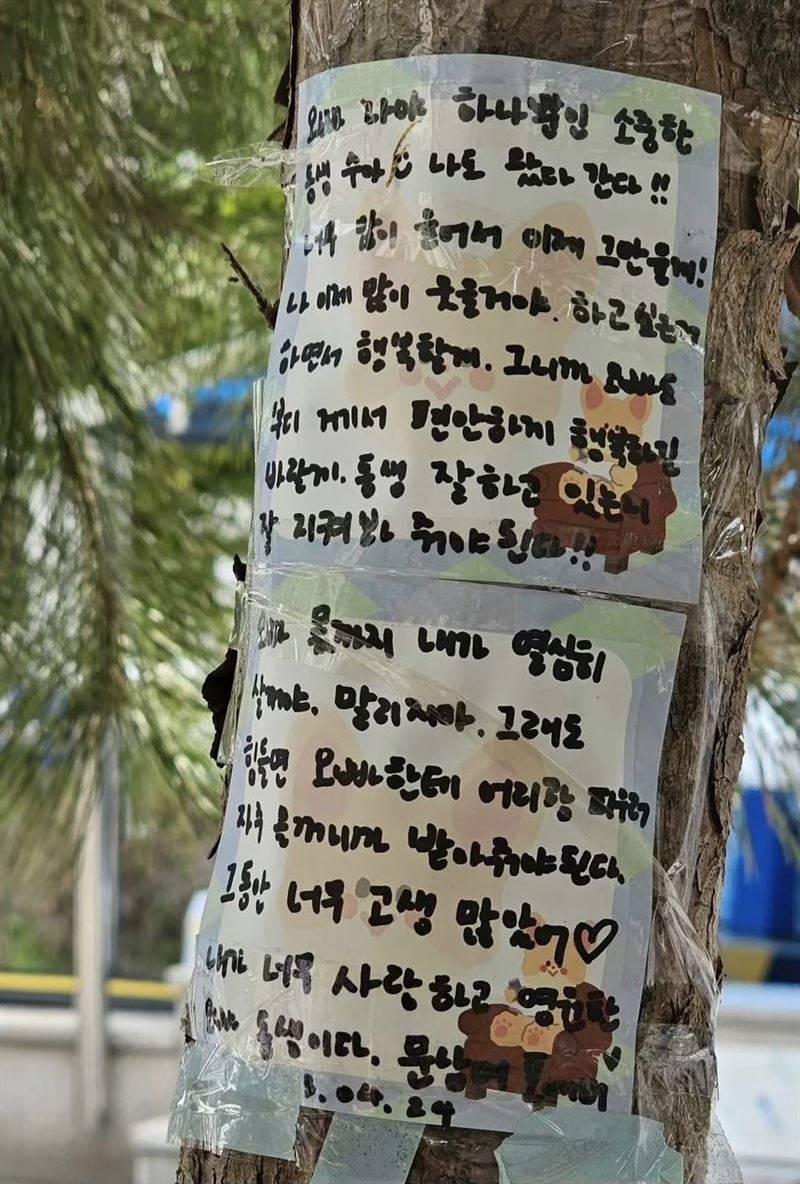 오빠 나야 하나뿐인 소중한
동생 수아 나도 왔다 간다!!
너무 많이 울어서 이제 그만울게!
나 이제 많이 웃을거야. 하고싶은거
하면서 행복할게. 그니까 오빠도
부디 거기서 편안하게 행복하길
바랄게. 동생 잘하고 있는지
잘 지켜봐 줘야된다!!
오빠 몫까지 내가 열심히
살꺼야. 말리지마. 그래도
힘들면 오빠한테 어리광 피우러
자주 올꺼니까 받아줘야된다.
그동안 너무 고생 많았어♡
내가 너무 사랑하고 영원한
오빠 동생이다.
3.04.24